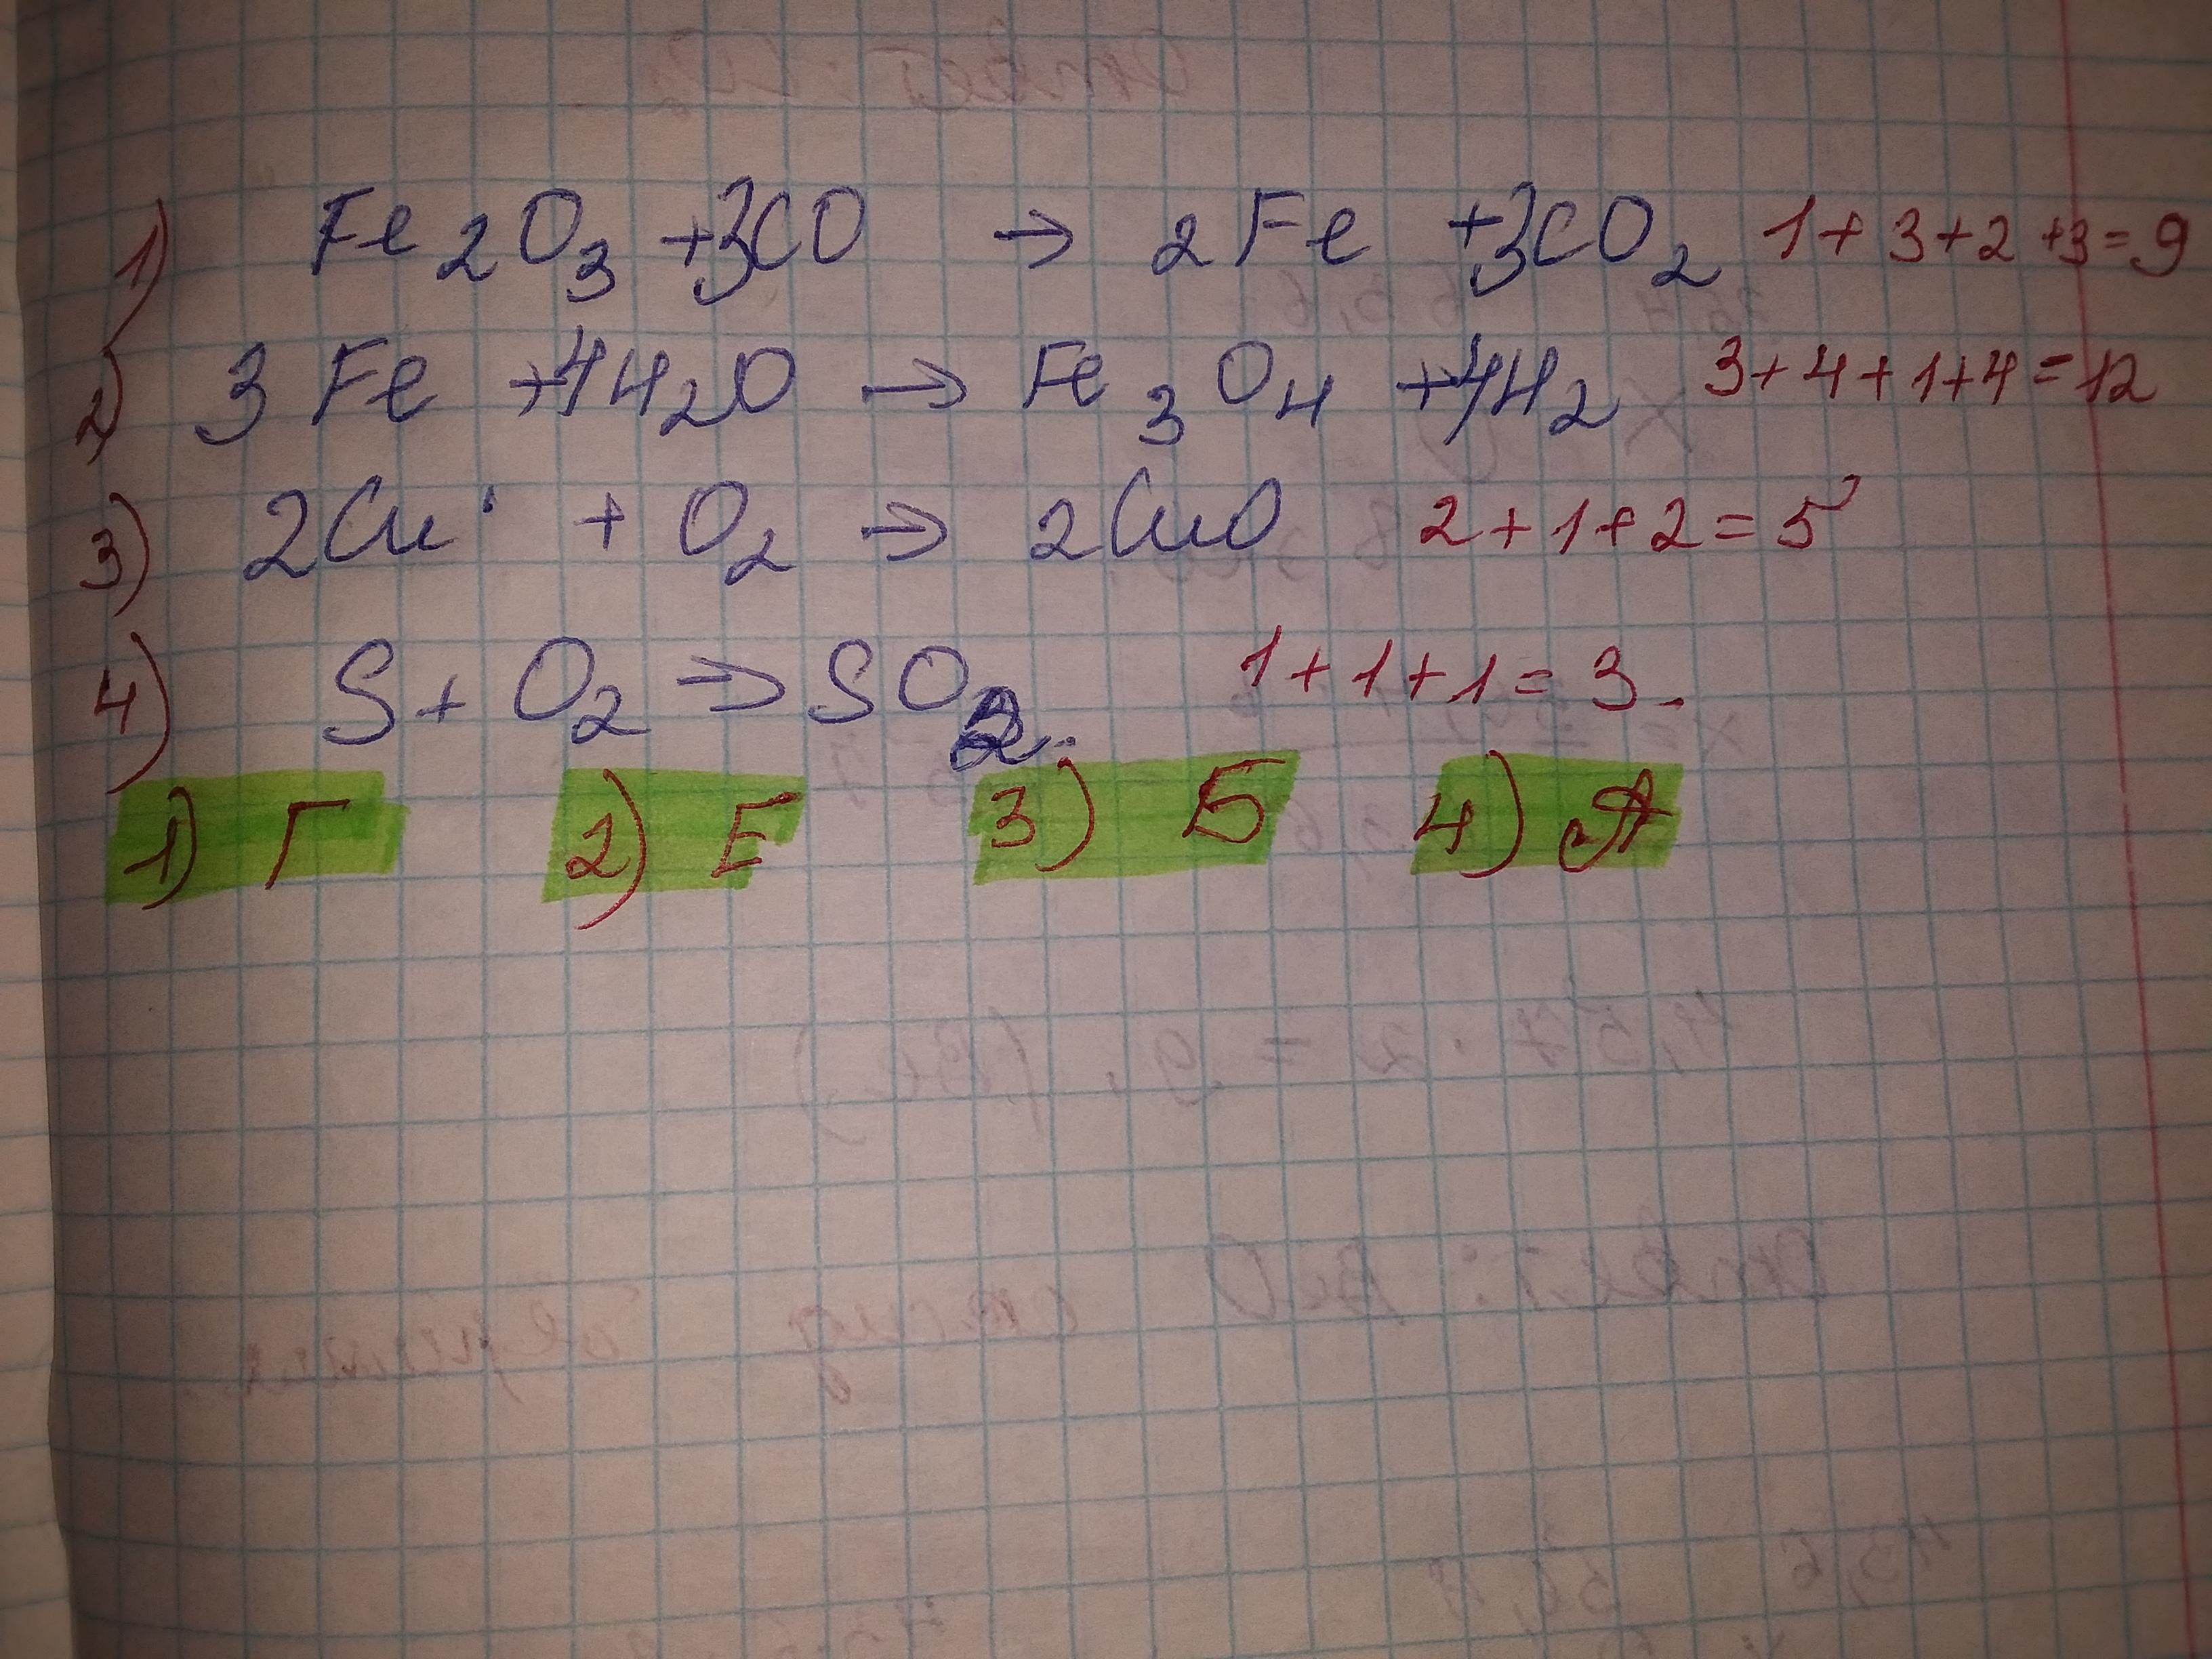 1) Fe2O3 +3CO → 2Fe +3CO2 1+3+2+3=9
2) 3Fe +4H2O → Fe3O4 +4H2 3+4+1+4=12
3) 2Cu + O2 → 2CuO 2+1+2=5
4) S+O2 → SO2. 1+1+1=3.
1) Г 2) Е 3) Б 4) А